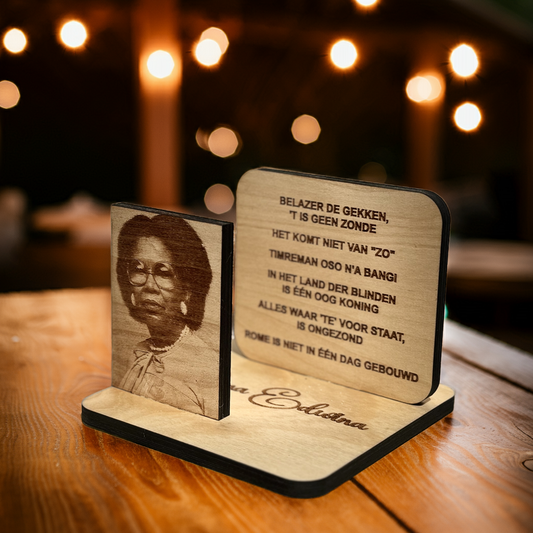 BELAZER DE GEKKEN,
'T IS GEEN ZONDE
HET KOMT NIET VAN "ZO"
TIMREMAN OSO N'A BANGI
IN HET LAND DER BLINDEN
IS ÉÉN OOG KONING
ALLES WAAR 'TE' VOOR STAAT,
IS ONGEZOND
ROME IS NIET IN ÉÉN DAG GEBOUWD
Edwina